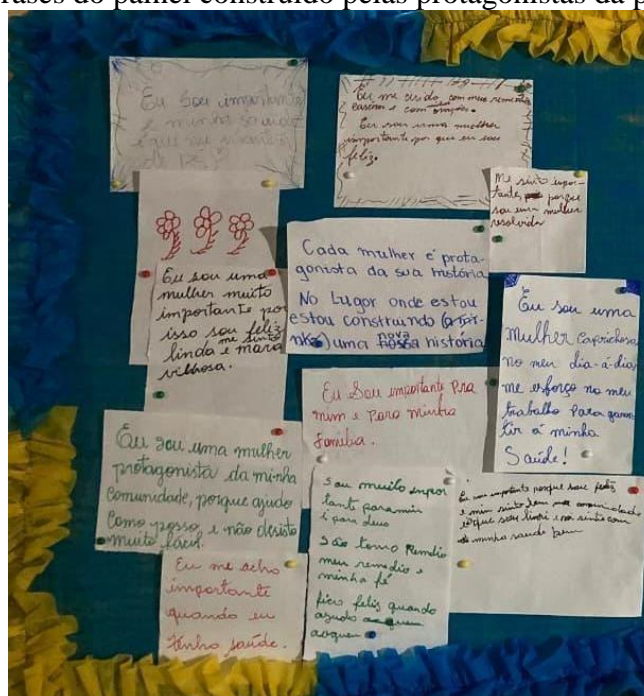 rases do painel construído pelas protagonistas da p
Eu sou importante
e minha saúde
é que me
Eu me cuido com meus remédios
caseiros e com orações.
Eu sou uma mulher
importante por que eu sou
feliz.
Me sinto impor-
tante, porque
sou uma mulher
resolvida
Eu sou uma
mulher muito
importante por
isso sou feliz
me sinto
linda e mara
vilhosa.
Cada mulher é prota-
gonista da sua história
No Lugor onde estou
estou construindo
uma nova história
Eu sou uma
mulher caprichosa
no meu dia-á-dia
me esforço no meu
trabalho para garan
tir á minha
Saúde!
Eu Sou importante pra
mim e para minha
família.
Eu sou uma mulher
protagonista da minha
Comunidade, porque ajudo
como posso, e não desisto
muito fácil.
sou muilo impor
tante para mim
i para deus
são tomo Remdio
meu remedio e
minha fé
fico feliz quando
ajudo
auguem
Eu sou importante porque sou feliz
e mim sinto bem
e porque sou linda e mi sinto com
a minha saude bem
Eu me acho
importante
quando eu
tenho saúde.